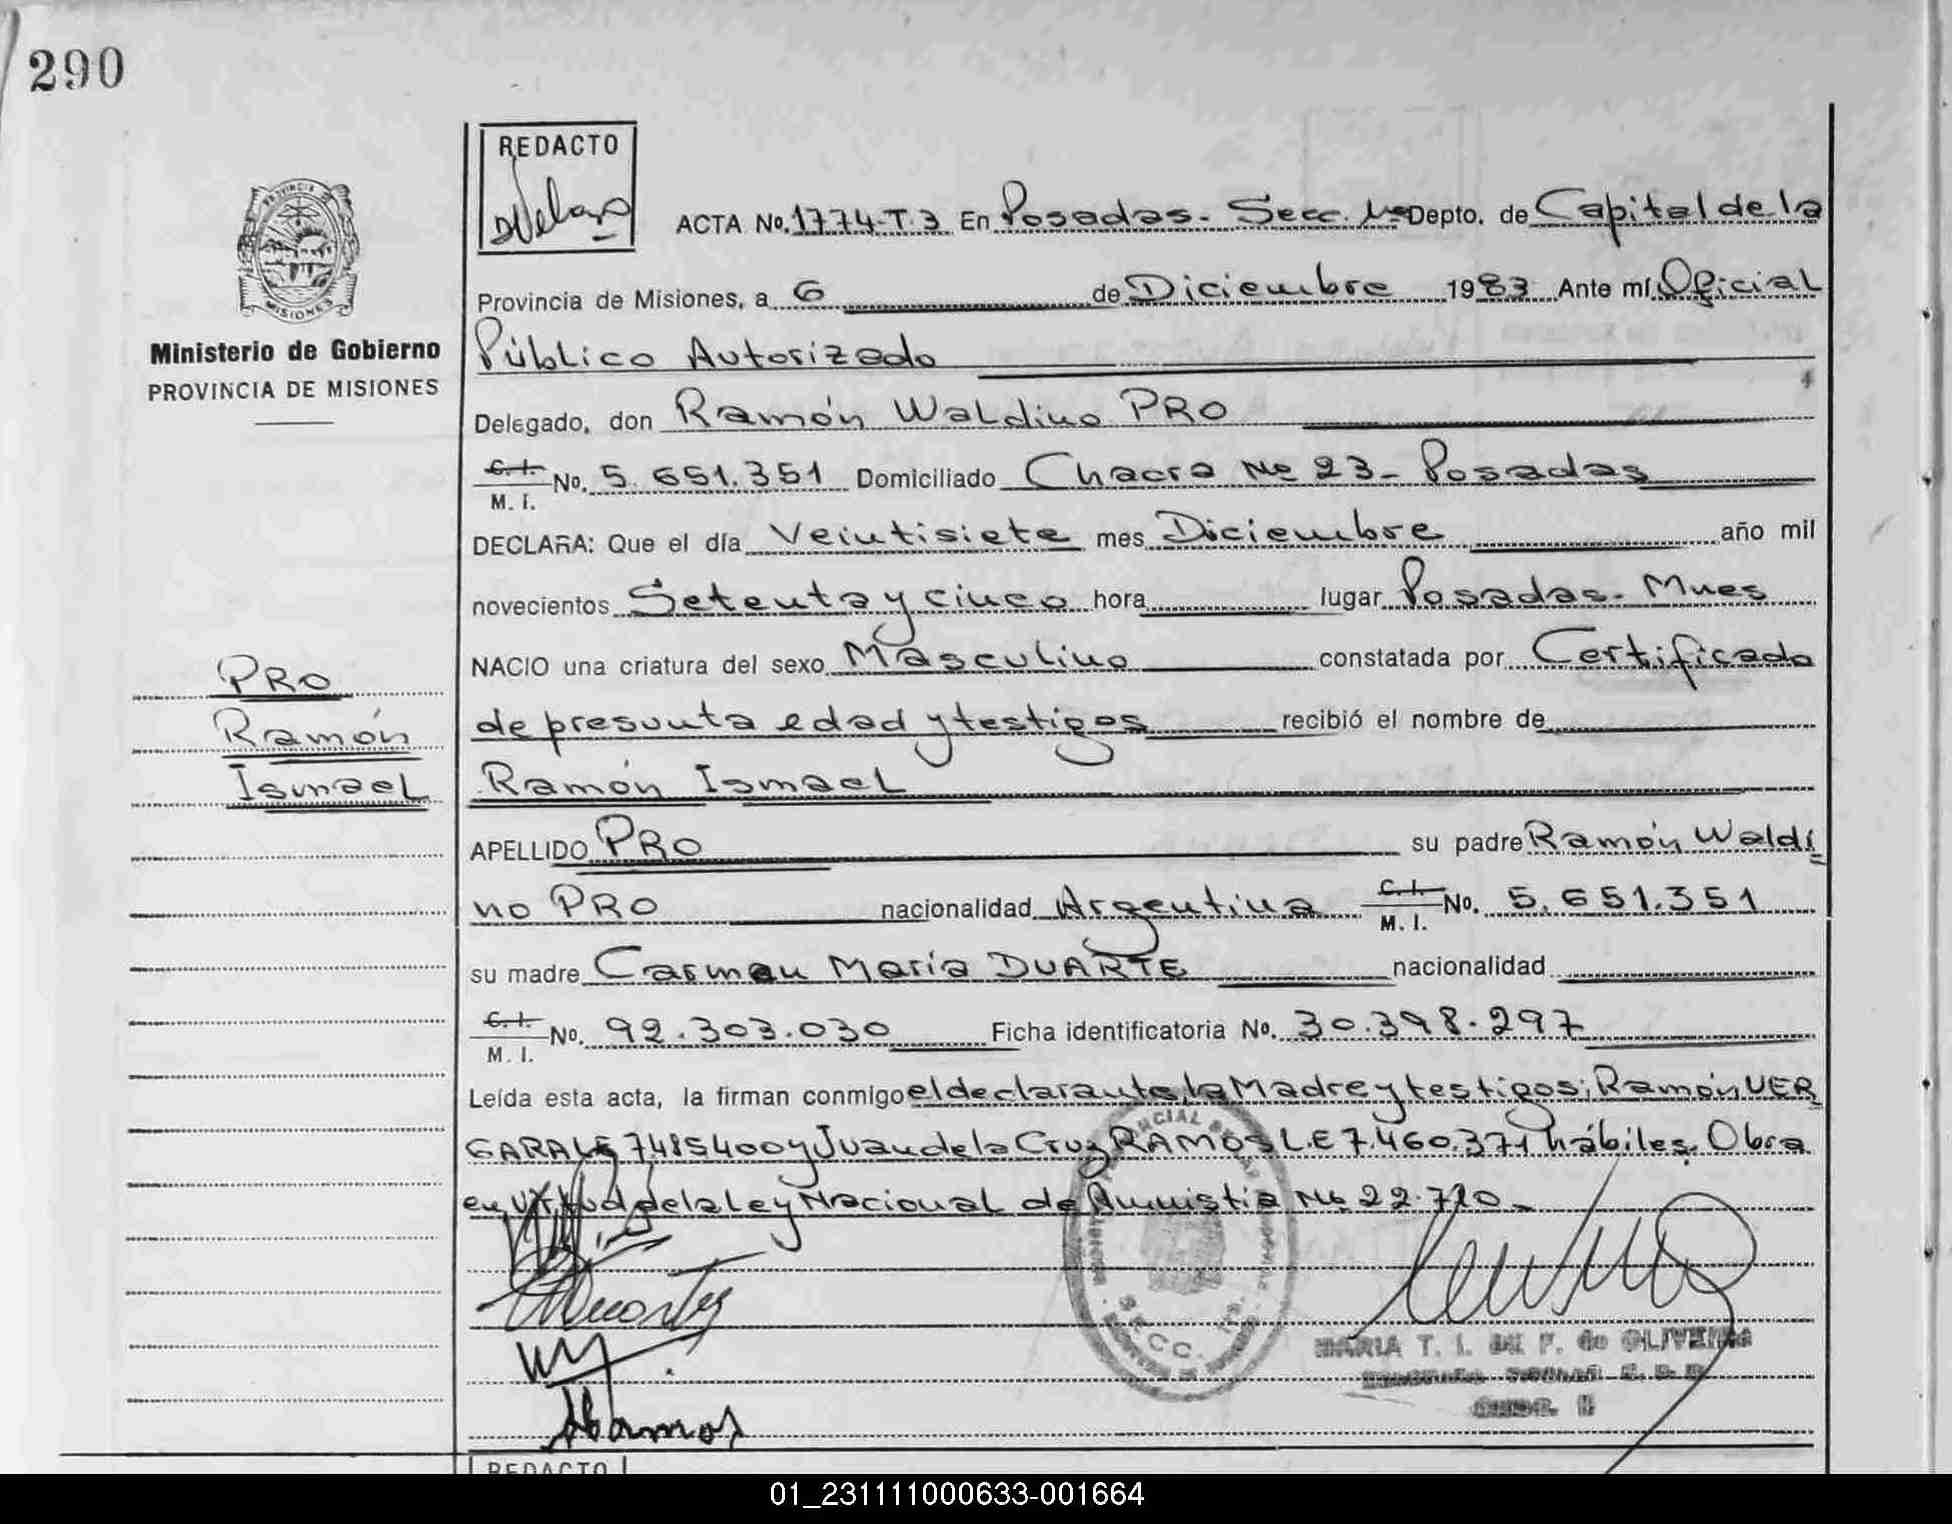 290
REDACTO
ACTA No. 1774-T.3 En Posadas - Secc. 1ª Depto. de Capital de la
Provincia de Misiones, a 6 de Diciembre 1983 Ante mí Oficial
Público Autorizado
Delegado, don Ramón Waldino PRO
C. I. / M. I. No. 5.651.351 Domiciliado Chacra Nº 23 - Posadas
DECLARA: Que el día Veintisiete mes Diciembre año mil
novecientos Setenta y cinco hora lugar Posadas - Mnes
NACIO una criatura del sexo Masculino constatada por Certificado
de presunta edad y testigos recibió el nombre de
Ramón Ismael
APELLIDO PRO su padre Ramón Waldi
no PRO nacionalidad Argentina C. I. / M. I. No. 5.651.351
su madre Carmen María DUARTE nacionalidad
C. I. / M. I. No. 92.303.030 Ficha identificatoria Nº. 30.398.297
Leída esta acta, la firman conmigo el declarante, la Madre y testigos; Ramón VER
GARA LE 7485400 y Juan de la Cruz RAMOS L.E 7.460.371 hábiles. Obra
en virtud de la Ley Nacional de Amnistía Nº 22.710 -
Ministerio de Gobierno
PROVINCIA DE MISIONES
PRO
Ramón
Ismael
PROVINCIA DE
MISIONES
MARIA T. I. DE F. de OLIVEIRA
REDACTO
01_231111000633-001664